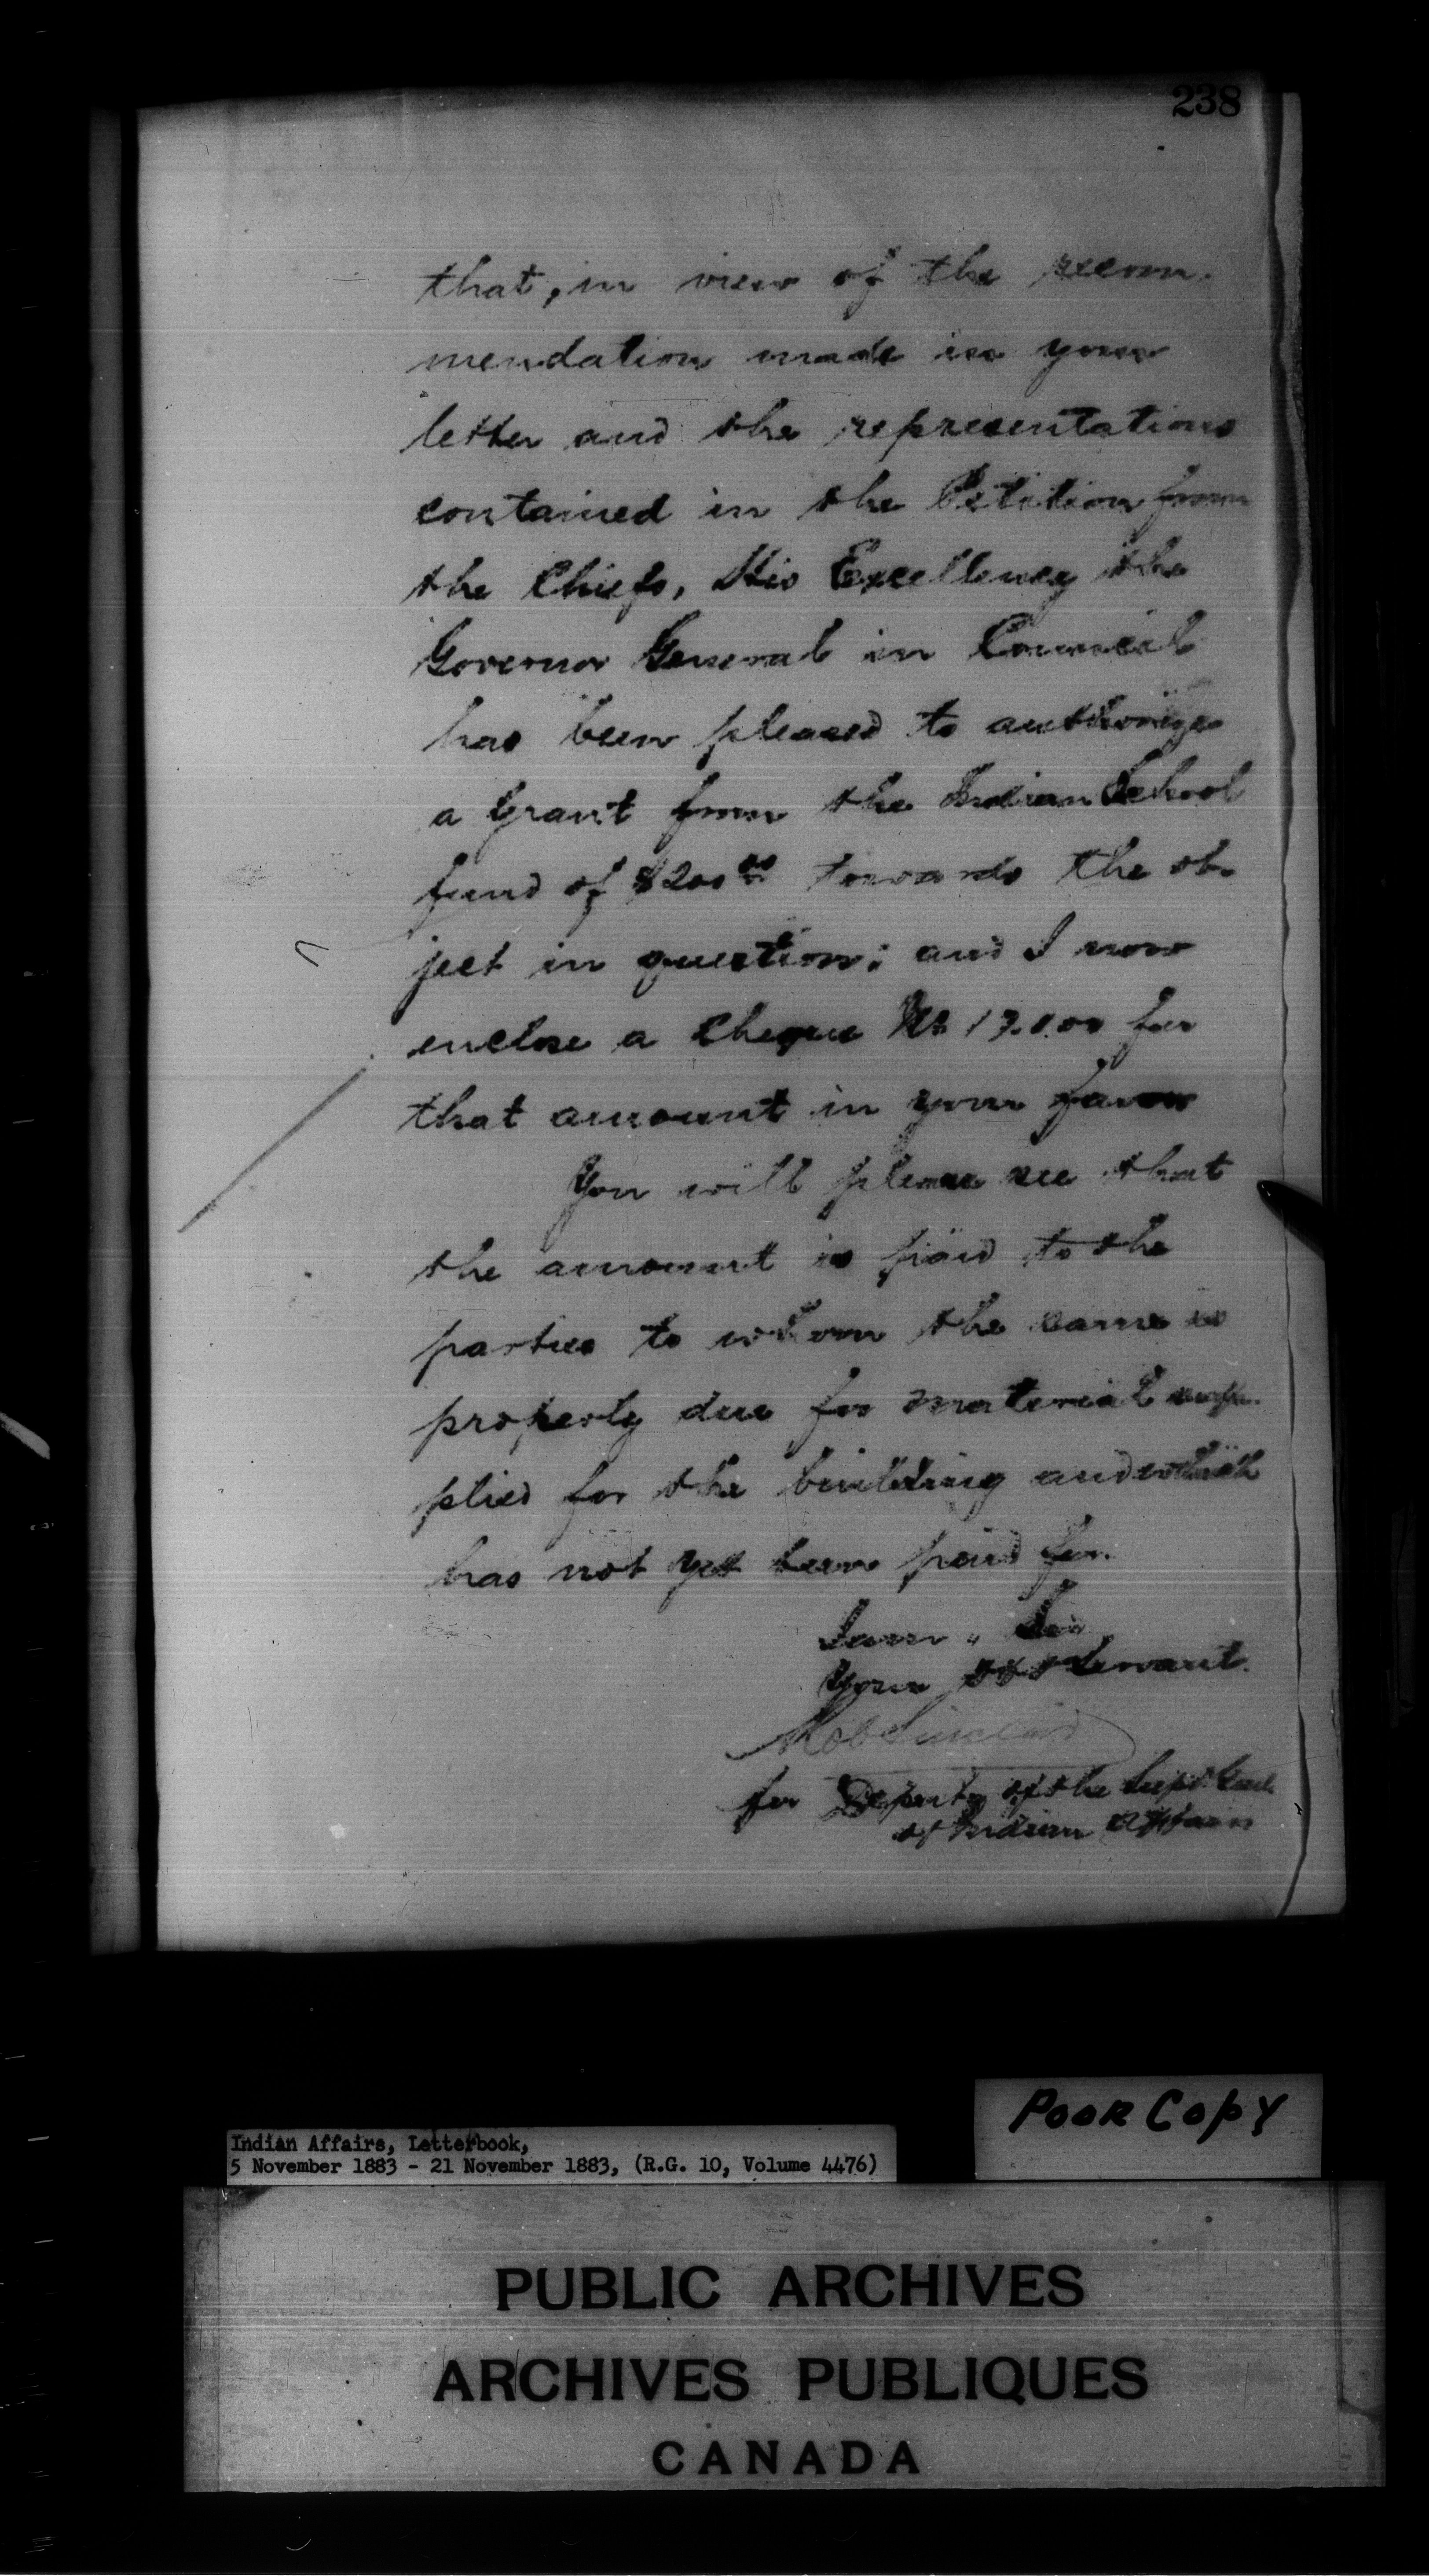 238
that, in view of the recom-
mendation made in your
letter and the representations
contained in the Petition from
the Chiefs, His Excellency the
Governor General in Council
has been pleased to authorize
a grant from the Indian School
fund of $200 00 towards the ob-
ject in question; and I now
enclose a cheque No for
that amount in your favor
You will please see that
the amount is paid to the
parties to whom the same is
properly due for material sup-
plied for the building and which
has not yet been paid for.
I am, Sir
Your Obt Servant.
Rob Sinclair
for Deputy of the Supt Genl
of Indian Affairs
Poor Copy
Indian Affairs, Letterbook,
5 November 1883 - 21 November 1883, (R.G. 10, Volume 4476)
PUBLIC ARCHIVES
ARCHIVES PUBLIQUES
CANADA